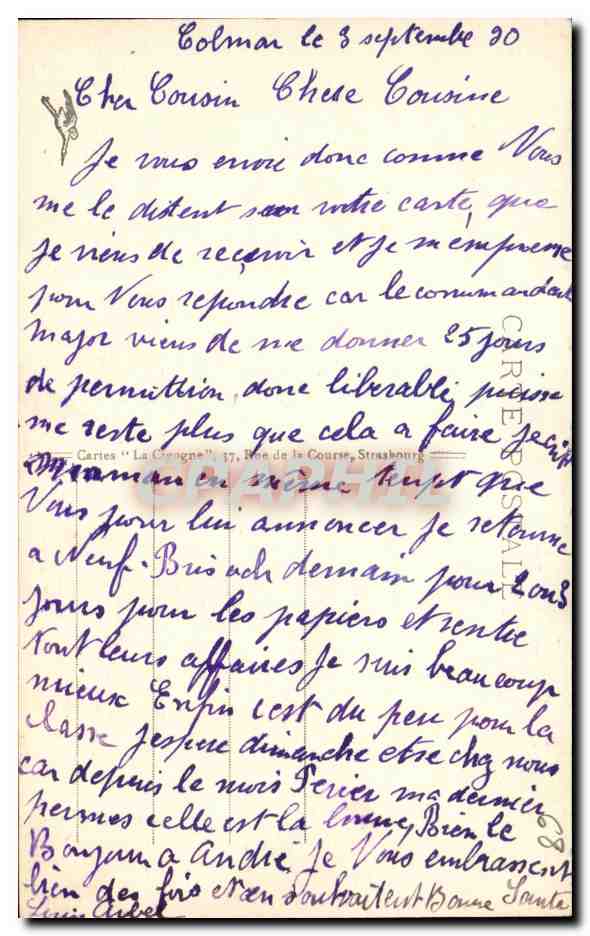 Colmar le 3 septembre 30
Cher Cousin Chere Cousine
Je vous envoi donc comme Vous
me le distent sur votre carte, que
je viens de recevoir et je m'empresse
pour Vous repondre car le commandant
major viens de me donner 25 jours
de permittion, donc liberable, puisse
me reste plus que cela a faire je écrit
Cartes "La Cigogne", 37, Rue de la Course, Strasbourg
CARTE POSTALE
CPAPHIL
maman en même tempt que
Vous pour lui annoncer je retourne
a Neuf-Brisach demain pour 2 ou 3
jours pour les papiers et rentre
tout leurs affaires Je suis beaucoup
mieux Enfin c'est du peu pour la
classe j'espere dimanche etre chez nous
car depuis le mois Fevrier ma dernier
permes celle est la bonne, Bien le
Bonjour a André Je Vous embrassent
bien des fois et en souhaitent Bonne Santé
68